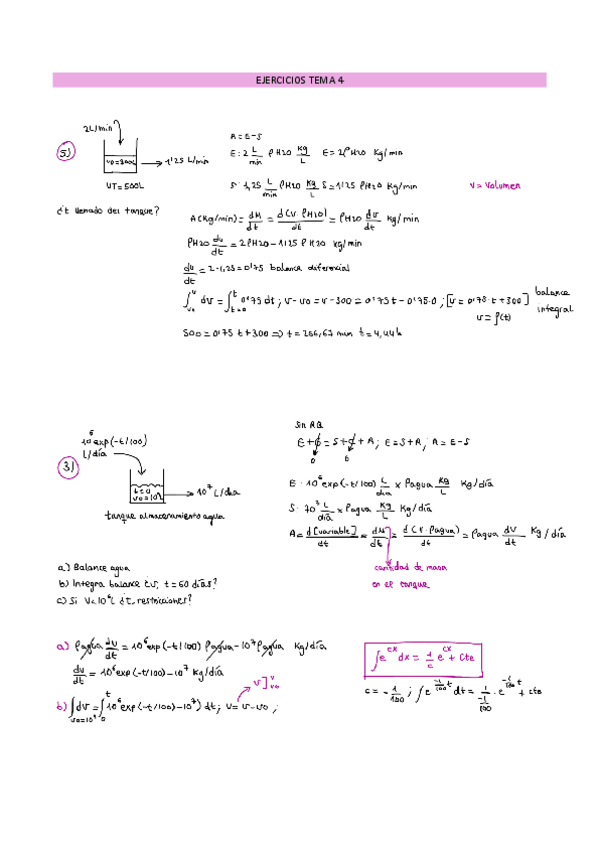 EJERCICIOS TEMA 4
2L/min
5)
V0=300L
1'25 L/min
VT=500L
A=E-S
E: 2 L/min ρH2O Kg/L E=2ρH2O Kg/min
S: 1,25 L/min ρH2O Kg/L S=1'25 ρH2O Kg/min
V=Volumen
¿t llenado del tanque?
A(Kg/min)= dM/dt = d(V·ρH2O)/dt = ρH2O dV/dt Kg/min
ρH2O dv/dt = 2ρH2O-1'25 ρH2O Kg/min
dv/dt = 2-1,25=0'75 balance diferencial
∫v0^v dv=∫t=0^t 0'75 dt; v-v0=v-300=0'75t-0'75·0; [v=0'75·t+300] balance integral
v=f(t)
500=0'75 t+300 => t=266,67 min t=4,44h
10^6 exp(-t/100)
L/día
3)
t=0
10^7 L/día
tanque almacenamiento agua
Sin RQ
E+ϕ=S+ϕ+A; E=S+A; A=E-S
0 0
E: 10^6 exp(-t/100) L/día x ρagua Kg/L Kg/día
S: 10^7 L/día x ρagua Kg/L Kg/día
A= d[variable]/dt = dM/dt = d(V·ρagua)/dt = ρagua dV/dt Kg/día
cantidad de masa
en el tanque
a) Balance agua
b) Integra balance ¿v, t=60 días?
restricciones?
a) ρagua dv/dt = 10^6 exp(-t/100) ρagua-10^7 ρagua Kg/día
dv/dt = 10^6 exp(-t/100)-10^7 Kg/día
v]v v0
b) ∫dv=∫0^t 10^6 exp(-t/100)-10^7) dt; V=v-v0;
∫e^cx dx= 1/c e^cx + Cte
c=-1/100; ∫e^-1/100 t dt= 1/-1/100 · e^-1/100 t + cte